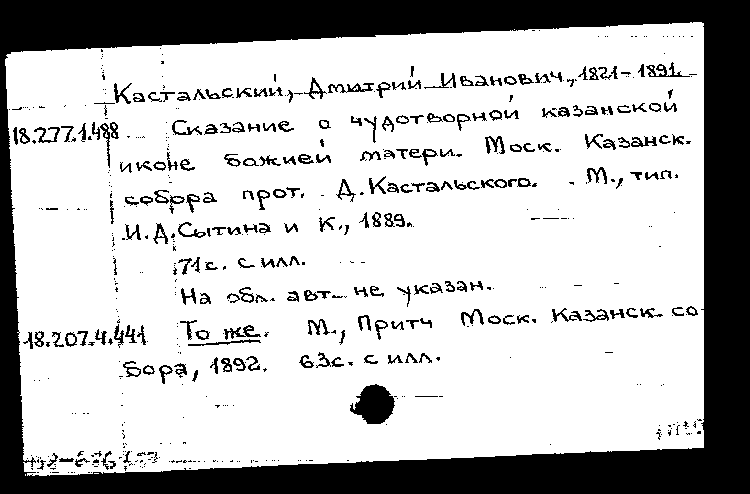 Кастальский, Дмитрий Иванович, 1821-1891.
18.277.1.488 Сказание о чудотворной казанской
иконе божией матери. Моск. Казанск.
собора прот. Д.Кастальского. М., тип.
И.Д.Сытина и К., 1889.
71с. с илл.
На обл. авт. не указан.
18.207.4.441 То же. М., Притч Моск. Казанск. со-
бора, 1892. 63с. с илл.